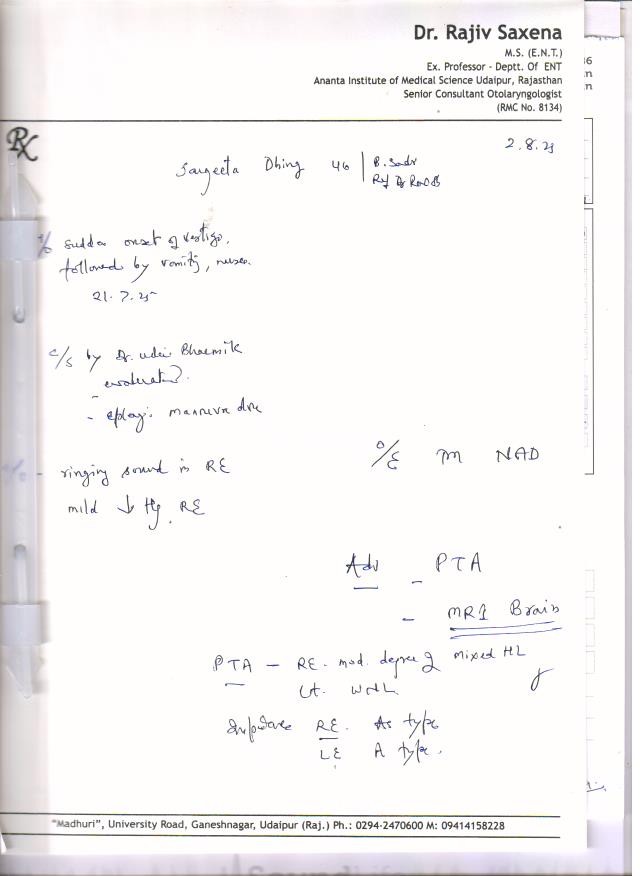 Dr. Rajiv Saxena
M.S. (E.N.T.)
Ex. Professor - Deptt. Of ENT
Ananta Institute of Medical Science Udaipur, Rajasthan
Senior Consultant Otolaryngologist
(RMC No. 8134)
Rx
2.8.25
Sangeeta Dhing 46
c/o sudden onset of vertigo,
followed by vomiting, nausea
21.7.25
c/s by Dr.
- maneuver done
c/o - ringing sound in RE
mild ↓ Hg RE
O/E NAD
Adv - PTA
- MRI Brain
PTA - RE. mod. degree of mixed HL
Lt. WNL
RE. As type
LE A type.
"Madhuri", University Road, Ganeshnagar, Udaipur (Raj.) Ph.: 0294-2470600 M: 09414158228